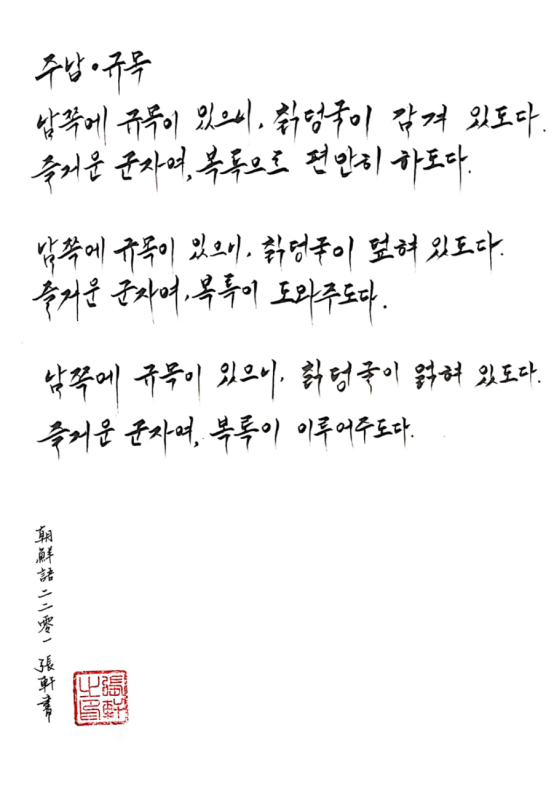 주남·규목
남쪽에 규목이 있으니, 칡덩굴이 감겨 있도다.
즐거운 군자여, 복록으로 편안히 하도다.
남쪽에 규목이 있으니, 칡덩굴이 덮혀 있도다.
즐거운 군자여, 복록이 도와주도다.
남쪽에 규목이 있으니, 칡덩굴이 얽혀 있도다.
즐거운 군자여, 복록이 이루어주도다.
朝鮮語二二零一張軒書
張軒之印